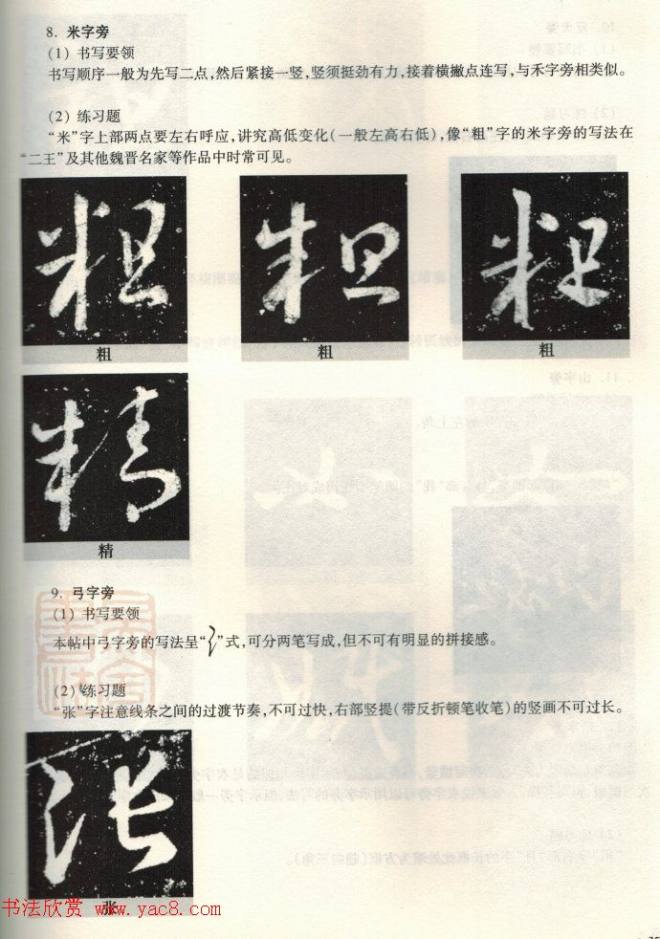 8. 米字旁
(1) 书写要领
书写顺序一般为先写二点,然后紧接一竖,竖须挺劲有力,接着横撇点连写,与禾字旁相类似。
(2) 练习题
“米”字上部两点要左右呼应,讲究高低变化(一般左高右低),像“粗”字的米字旁的写法在
“二王”及其他魏晋名家等作品中时常可见。
粗 粗 粗
粗 粗 粗
精
精
9. 弓字旁
(1) 书写要领
本帖中弓字旁的写法呈“ ”式,可分两笔写成,但不可有明显的拼接感。
(2) 练习题
“张”字注意线条之间的过渡节奏,不可过快,右部竖提(带反折顿笔收笔)的竖画不可过长。
张
张
书法欣赏 www.yac8.com